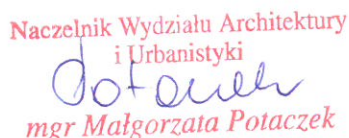 Naczelnik Wydziału Architektury
i Urbanistyki
Potaczek
mgr Małgorzata Potaczek